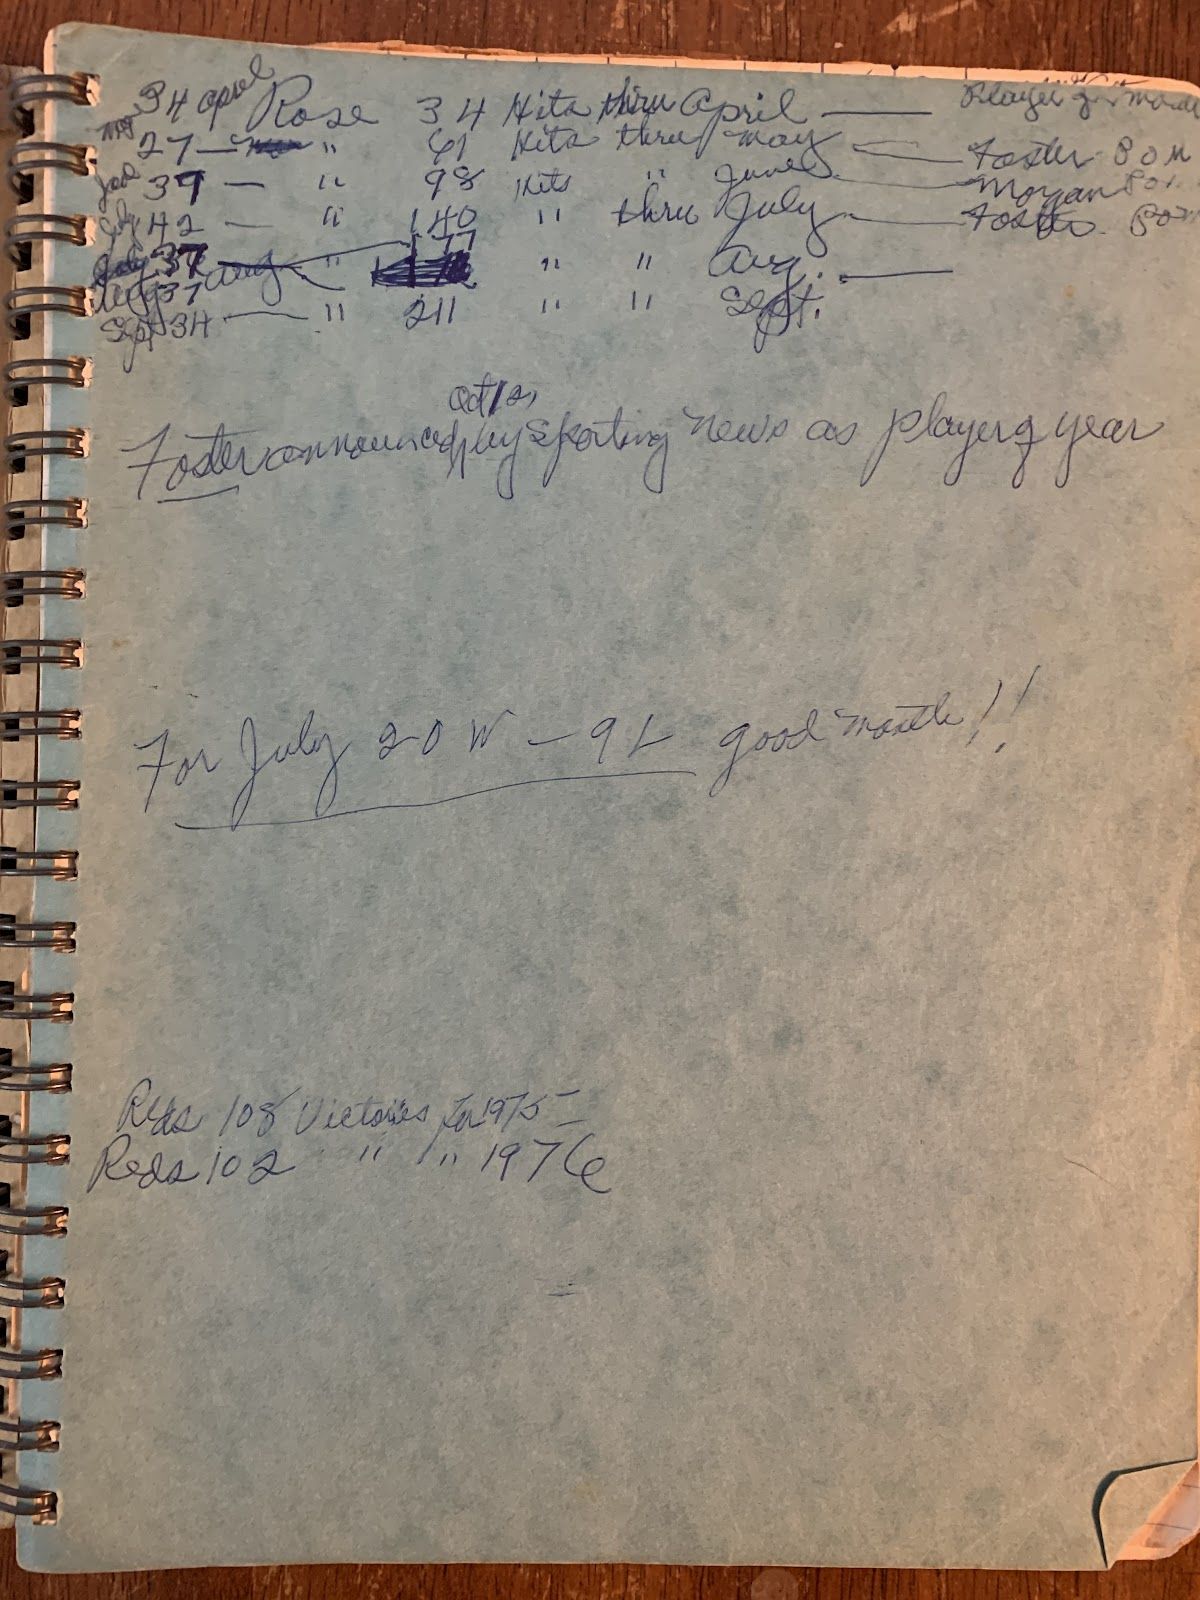 34 April Rose 34 Hits thru April — Player of Month
27 — " 61 Hits thru May — Foster P O M
37 — " 98 Hits " June — Morgan P O M
July 42 — " 140 " thru July — Foster P O M
37 Aug " 177 " " Aug. —
Aug 37
Sept 34 — " 211 " " Sept.
Oct 12,
Foster announced by Sporting News as player of year
For July 20 W – 9 L good month!!
Reds 108 Victories for 1975 –
Reds 102 " " 1976